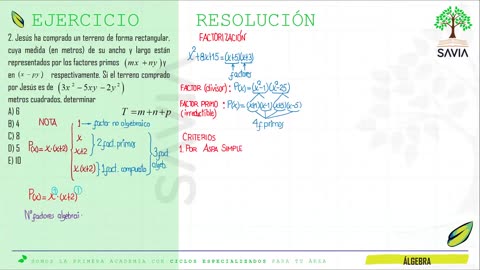 EJERCICIO
2. Jesús ha comprado un terreno de forma rectangular,
cuya medida (en metros) de su ancho y largo están
representados por los factores primos (mx + ny) y
en (x − py) respectivamente. Si el terreno comprado
por Jesús es de (3x² − 5xy − 2y²)
metros cuadrados, determinar
T = m + n + p
A) 6
B) 4
C) 8
D) 5
E) 10
NOTA
P(x) = x·(x+2)
1 → factor no algebraico
x
x+2
2 fact. primos
x(x+2) } 1 fact. compuesto
3 fact. algeb.
P(x) = x^① · (x+2)^①
Nº factores algebrai
RESOLUCIÓN
FACTORIZACIÓN
x² + 8x + 15 = (x+5)(x+3)
factores
FACTOR (divisor): P(x) = (x²-1)(x²-25)
FACTOR PRIMO: P(x) = (x+1)(x-1)(x+5)(x-5)
(irreductible)
4 f. primos
CRITERIOS
1. POR ASPA SIMPLE
SAVIA
SOMOS LA PRIMERA ACADEMIA CON CICLOS ESPECIALIZADOS PARA TU ÁREA
ÁLGEBRA